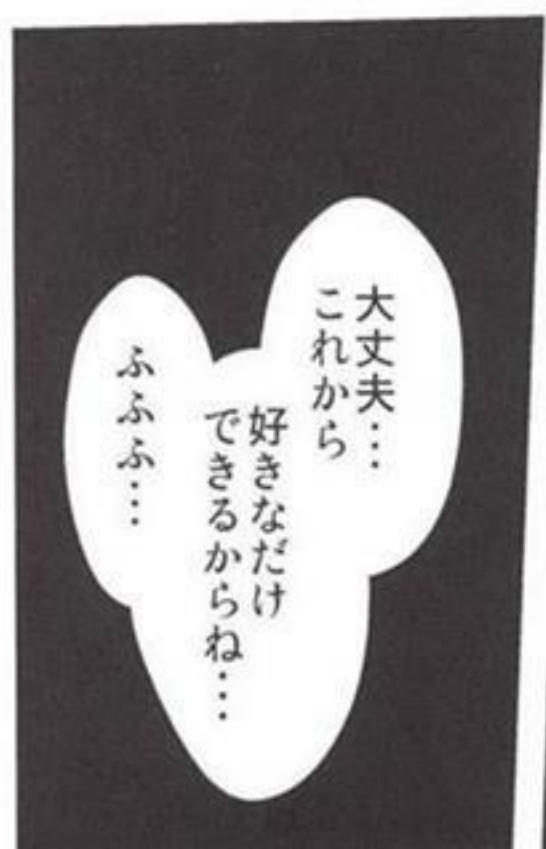 大丈夫…
これから
好きなだけ
できるからね…
ふふふ…